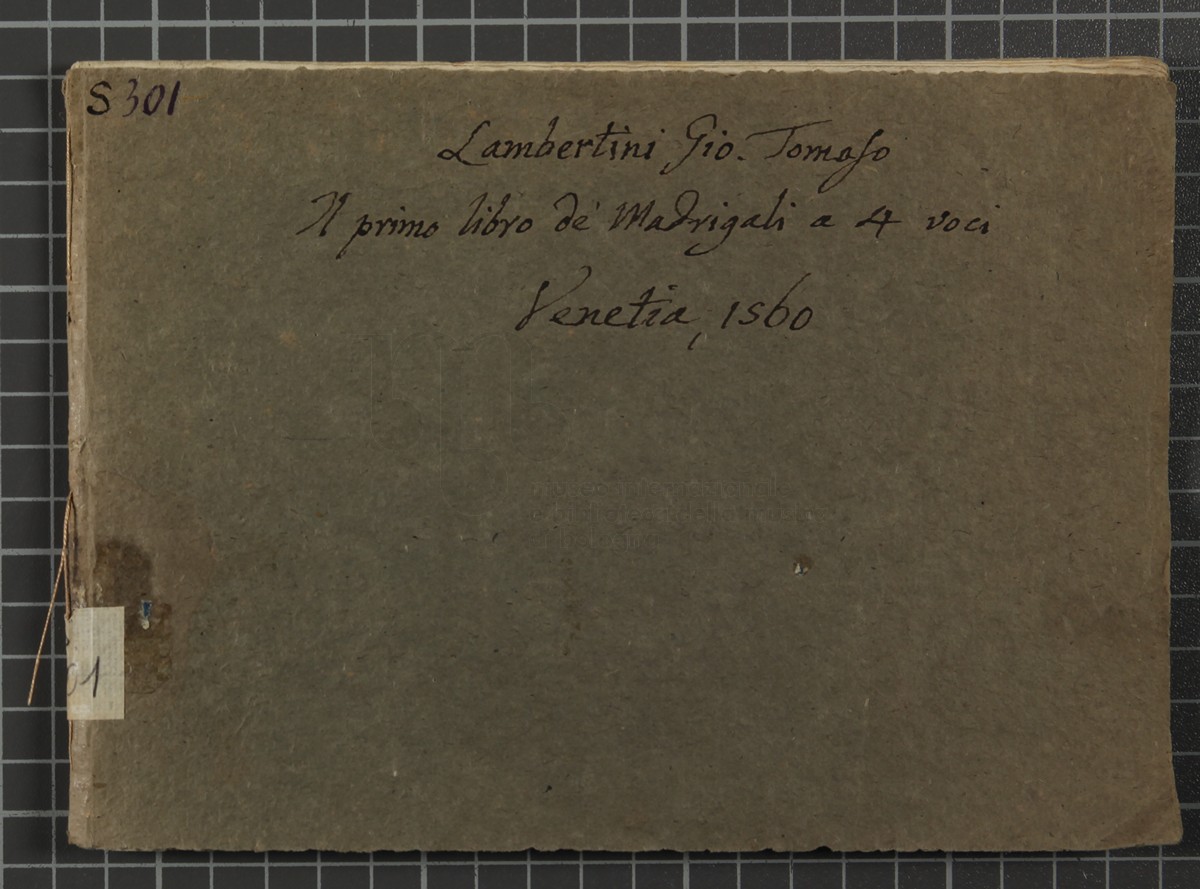 S301
Lambertini Gio. Tomaso
Il primo libro de' Madrigali a 4 voci
Venetia, 1560
01